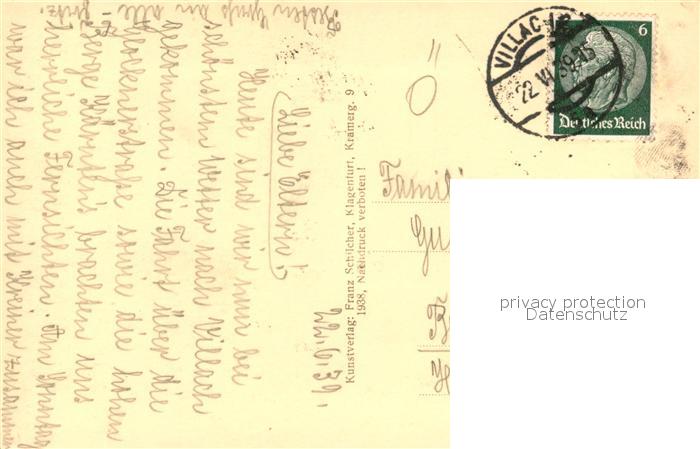 22.6.39.
Liebe Eltern!
Heute sind wir nun bei
schönstem Wetter nach Villach
gekommen. Die Fahrt über die
Glocknerstraße sowie die hohen
Berge Kärntn's brachten uns
herrliche Fernsichten. Am Sonntag
war ich auch mit Heiner zusammen
Besten Gruß an alle
Fritz.
Kunstverlag: Franz Schilcher, Klagenfurt, Kramerg. 9
1938, Nachdruck verboten!
Ö
VILLACH 2
22.VI.39.15
6
Deutsches Reich
Famil
Gu
B
privacy protection
Datenschutz